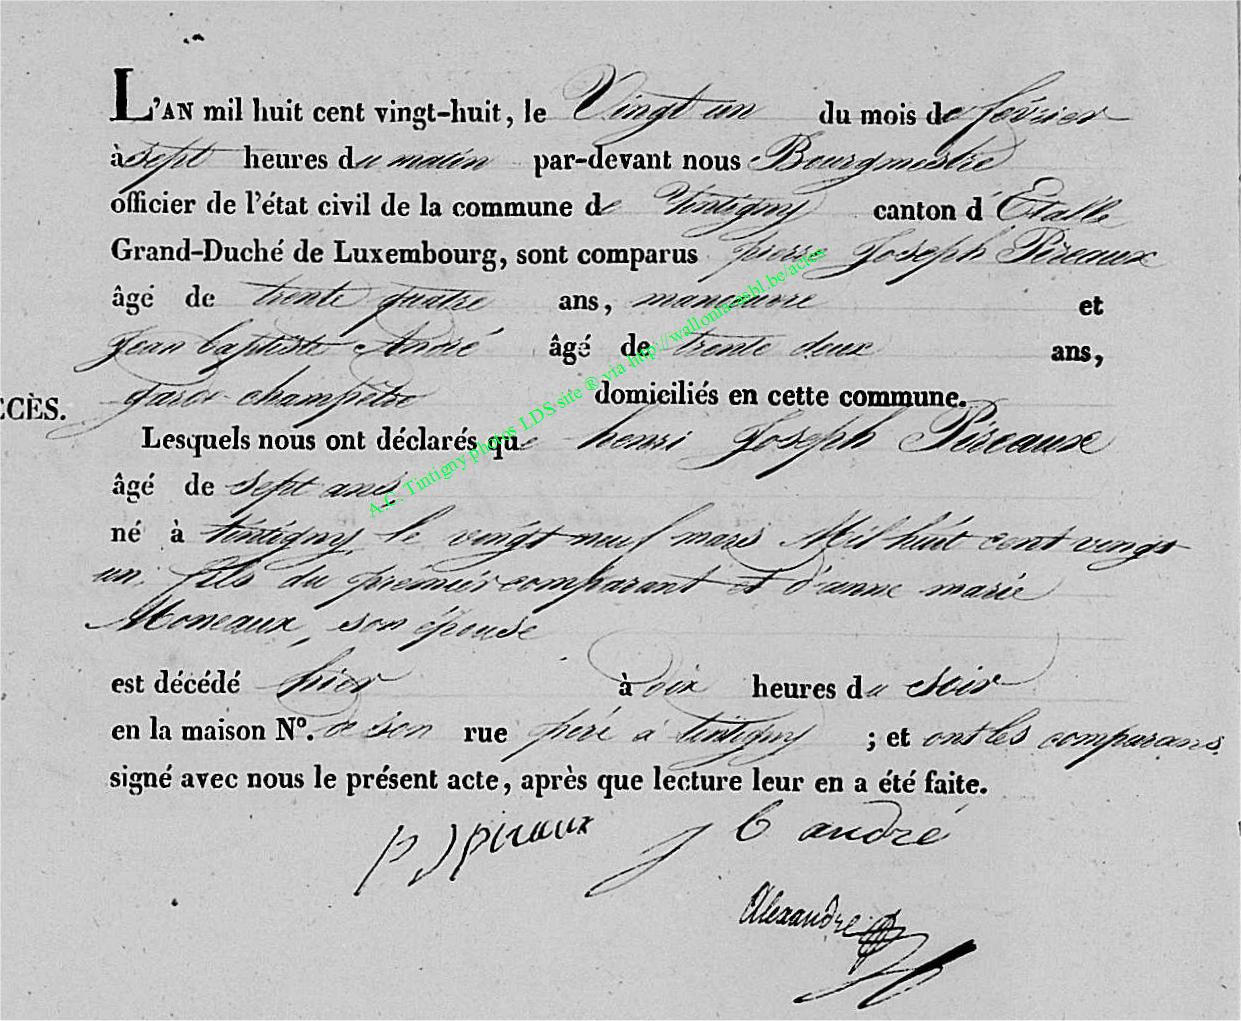 L'AN mil huit cent vingt-huit, le Vingt un du mois de février
à sept heures du matin par-devant nous Bourgmestre
officier de l'état civil de la commune de Tintigny canton d'Étalle
Grand-Duché de Luxembourg, sont comparus pierre Joseph Pireaux
âgé de trente quatre ans, manœuvre et
Jean baptiste André âgé de trente deux ans,
garde champêtre domiciliés en cette commune.
CÈS.
Lesquels nous ont déclarés que henri Joseph Pireaux
âgé de sept ans
né à tintigny le vingt neuf mars Mil huit cent vingt
un. fils du premier comparant et d'anne marie
Moneaux, son épouse
est décédé hier à dix heures du soir
en la maison N°. de son rue père à tintigny ; et ont les comparans
signé avec nous le présent acte, après que lecture leur en a été faite.
p J piraux J b andré
Alexandre
A.C. Tintigny photos LDS site ® via http://walloniaasbl.be/actes